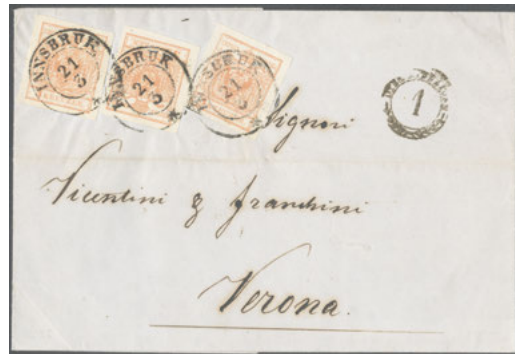 INNSBRUK
21
3
INNSBRUK
21
3
INNSBRUK
21
3
1
Signori
Vicentini & Franchini
Verona.